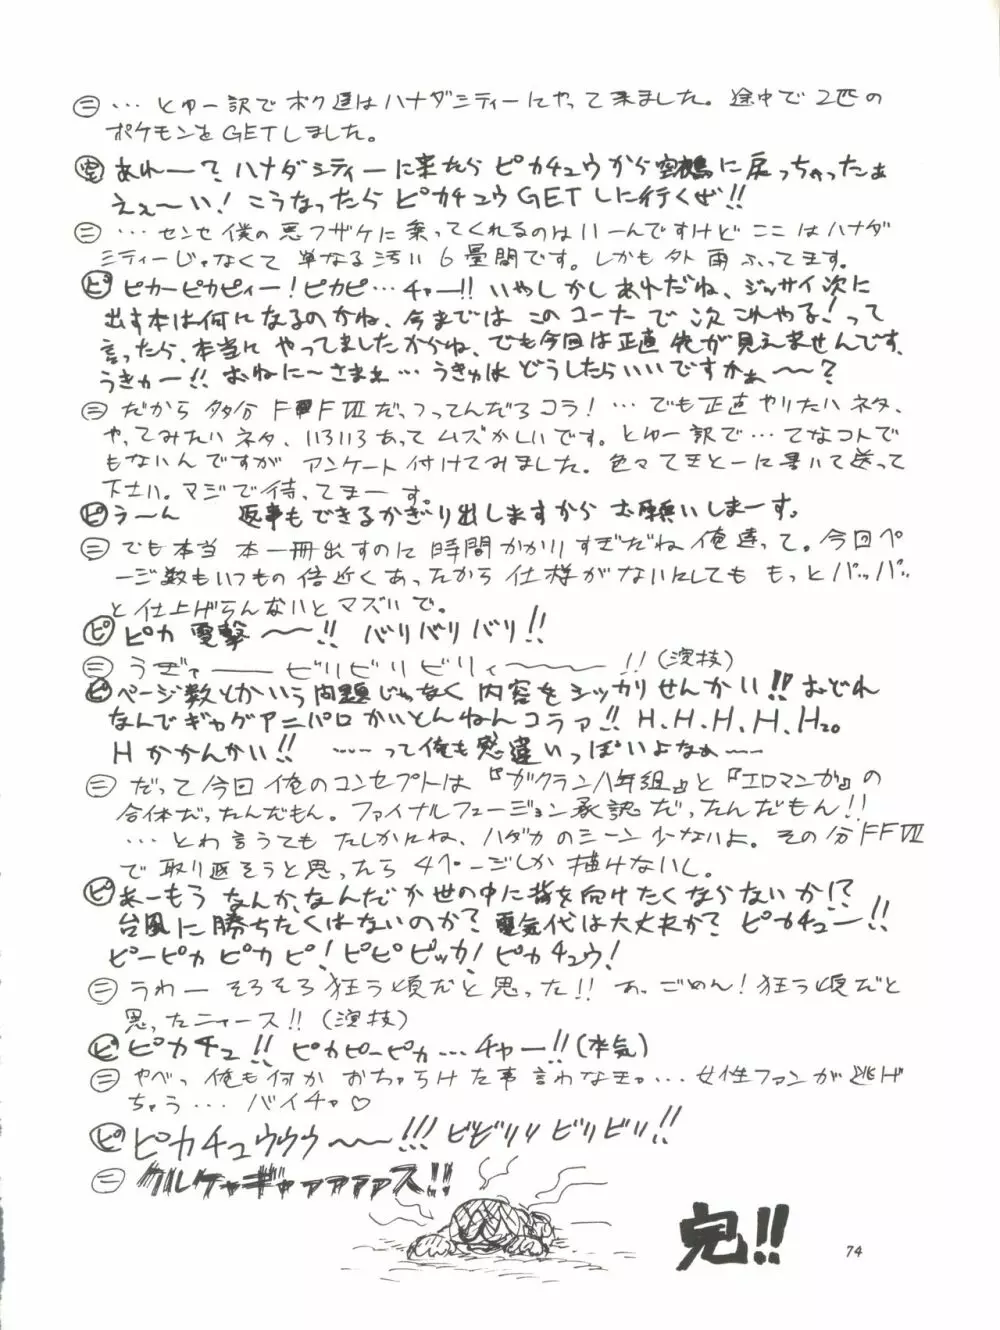 ㊁ … とゆー訳でボク達はハナダシティーにやって来ました。途中で2匹の
ポケモンをGETしました。
あれー？ハナダシティーに来たらピカチュウから空鵺に戻っちゃったぁ
えぇ〜い！こうなったらピカチュウGETしに行くぜ!!
㊁ … センセ僕の悪フザケに乗ってくれるのはいーんですけどここはハナダ
シティーじゃなくて単なる汚い6畳間です。しかも外雨ふってます。
ピ ピカーピカピィー！ピカピ…チャー!! いやしかしあれだね、ジッサイ次に
出す本は何になるのかね、今まではこのコーナで次これやる！って
言ったら、本当にやってましたからね、でも今回は正直先が見えませんです、
うきゅー!! おねに〜さまぁ… うきゅはどうしたらいいですかぁ〜〜？
㊁ だから多分FFⅦだっつってんだろコラ！…でも正直やりたいネタ、
やってみたいネタ、いろいろあってムズかしいです。とゆー訳で…てなコトで
もないんですがアンケート付けてみました。色々てきとーに書いて送って
下さい。マジで待ってまーす。
ピ うーん 返事もできるかぎり出しますからお願いしまーす。
㊁ でも本当本一冊出すのに時間かかりすぎだね俺達って。今回ペ
ージ数もいつもの倍近くあったから仕様がないにしてももっとパッパッ
と仕上げらんないとマズいで。
ピ ピカ電撃〜〜!! バリバリバリ!!
㊁ うぎゃ――― ビリビリビリィ〜〜〜 !!（演技）
ピ ページ数とかいう問題じゃなく内容をシッカリせんかい!! おどれ
なんでギャグアニパロかいとんねんコラァ!! H.H.H.H.H₂O
Hかかんかい!! ……って俺も感違いっぽいよなぁ〜〜
㊁ だって今回俺のコンセプトは『ガクラン八年組』と『エロマンガ』の
合体だったんだもん。ファイナルフュージョン承認だったんだもん!!
…とわ言うてもたしかにね、ハダカのシーン少ないよ。その分FFⅦ
で取り返そうと思ったら4ページしか描けないし。
ピ あーもうなんか、なんだか世の中に背を向けたくならないか!?
台風に勝ちたくはないのか？電気代は大丈夫か？ピカチュー!!
ピーピカピカピ！ピピピッカ！ピカチュウ！
㊁ うわーそろそろ狂う頃だと思った!! あっごめん！狂う頃だと
思ったニャース!!（演技）
ピ ピカチュ!! ピカピーピカ…チャー!!（本気）
㊁ やべっ俺も何かおちゃらけた事言わなきゃ…女性ファンが逃げ
ちゃう… バイチャ♡
ピ ピカチュウウウ〜〜!!! ビビリリビリビリ!!
㊁ グルケャギャァァァァス!!
完!!
74